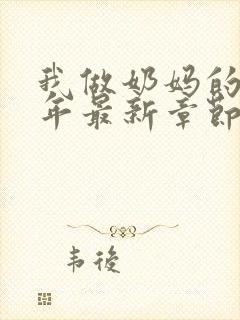 我做奶妈的
年最新章節
韦後